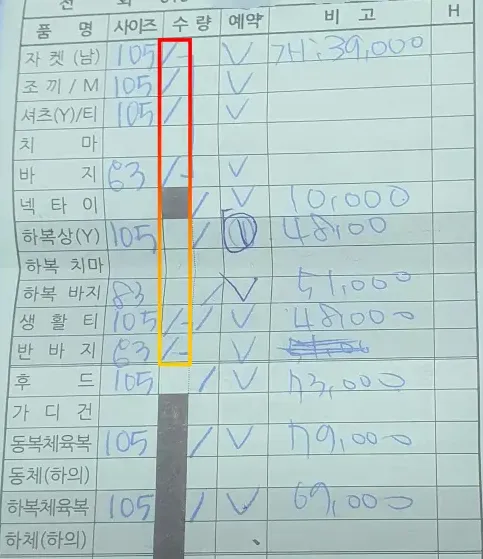 품 명 사이즈 수 량 예약 비 고 H
자 켓 (남) 105 /- V 39,000
조 끼 / M 105 / V
셔츠(Y)/티 105 / V
치 마
바 지 83 /- V
넥 타 이 / V 10,000
하복상(Y) 105 / 48,00
하복 치마
하복 바지 83 / V 51,000
생 활 티 105 /- / V 48,000
반 바 지 83 /- V
후 드 105 / V 73,000
가 디 건
동복체육복 105 / V 79,000
동체(하의)
하복체육복 105 / V 69,000
하체(하의)